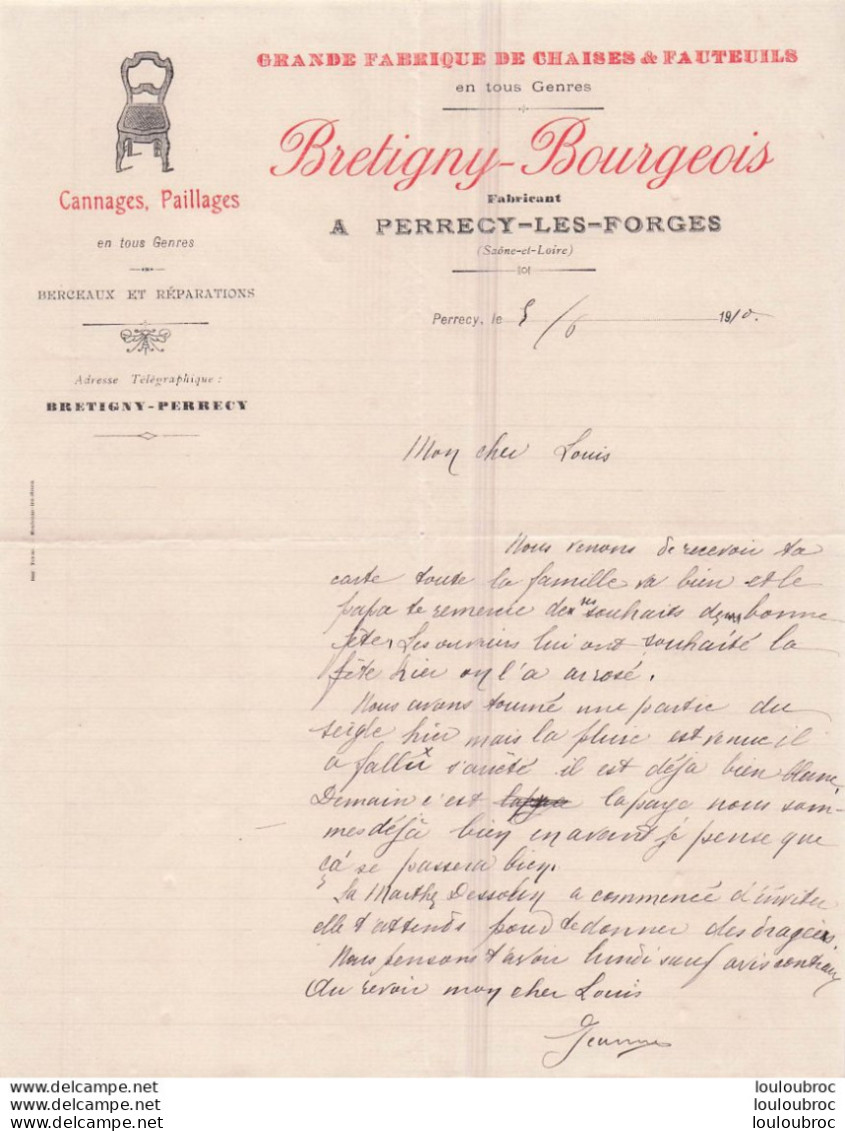 GRANDE FABRIQUE DE CHAISES & FAUTEUILS
en tous Genres
Bretigny-Bourgeois
Fabricant
A PERRECY-LES-FORGES
(Saône-et-Loire)
Cannages, Paillages
en tous Genres
BERCEAUX ET RÉPARATIONS
Adresse Télégraphique :
BRETIGNY-PERRECY
Perrecy, le 5/6 1910.
Mon cher Louis
Nous venons de recevoir ta
carte toute la famille va bien et le
papa te remercie de tes souhaits de bonne
fête, Les ouvriers lui ont souhaité la
fête hier on l'a arrosé.
Nous avons tourné une partie du
seigle hier mais la pluie est venue il
a fallu s'arrêté il est déjà bien blanc,
Demain c'est la paye nous som-
mes déjà bien en avant je pense que
ça se passera bien.
La Marthe a commencé d'inviter
elle t'attends pour te donner des dragées.
Nous pensons t'avoir lundi sauf avis contraire
Au revoir mon cher Louis
Jeanne
louloubroc
louloubroc
louloubroc